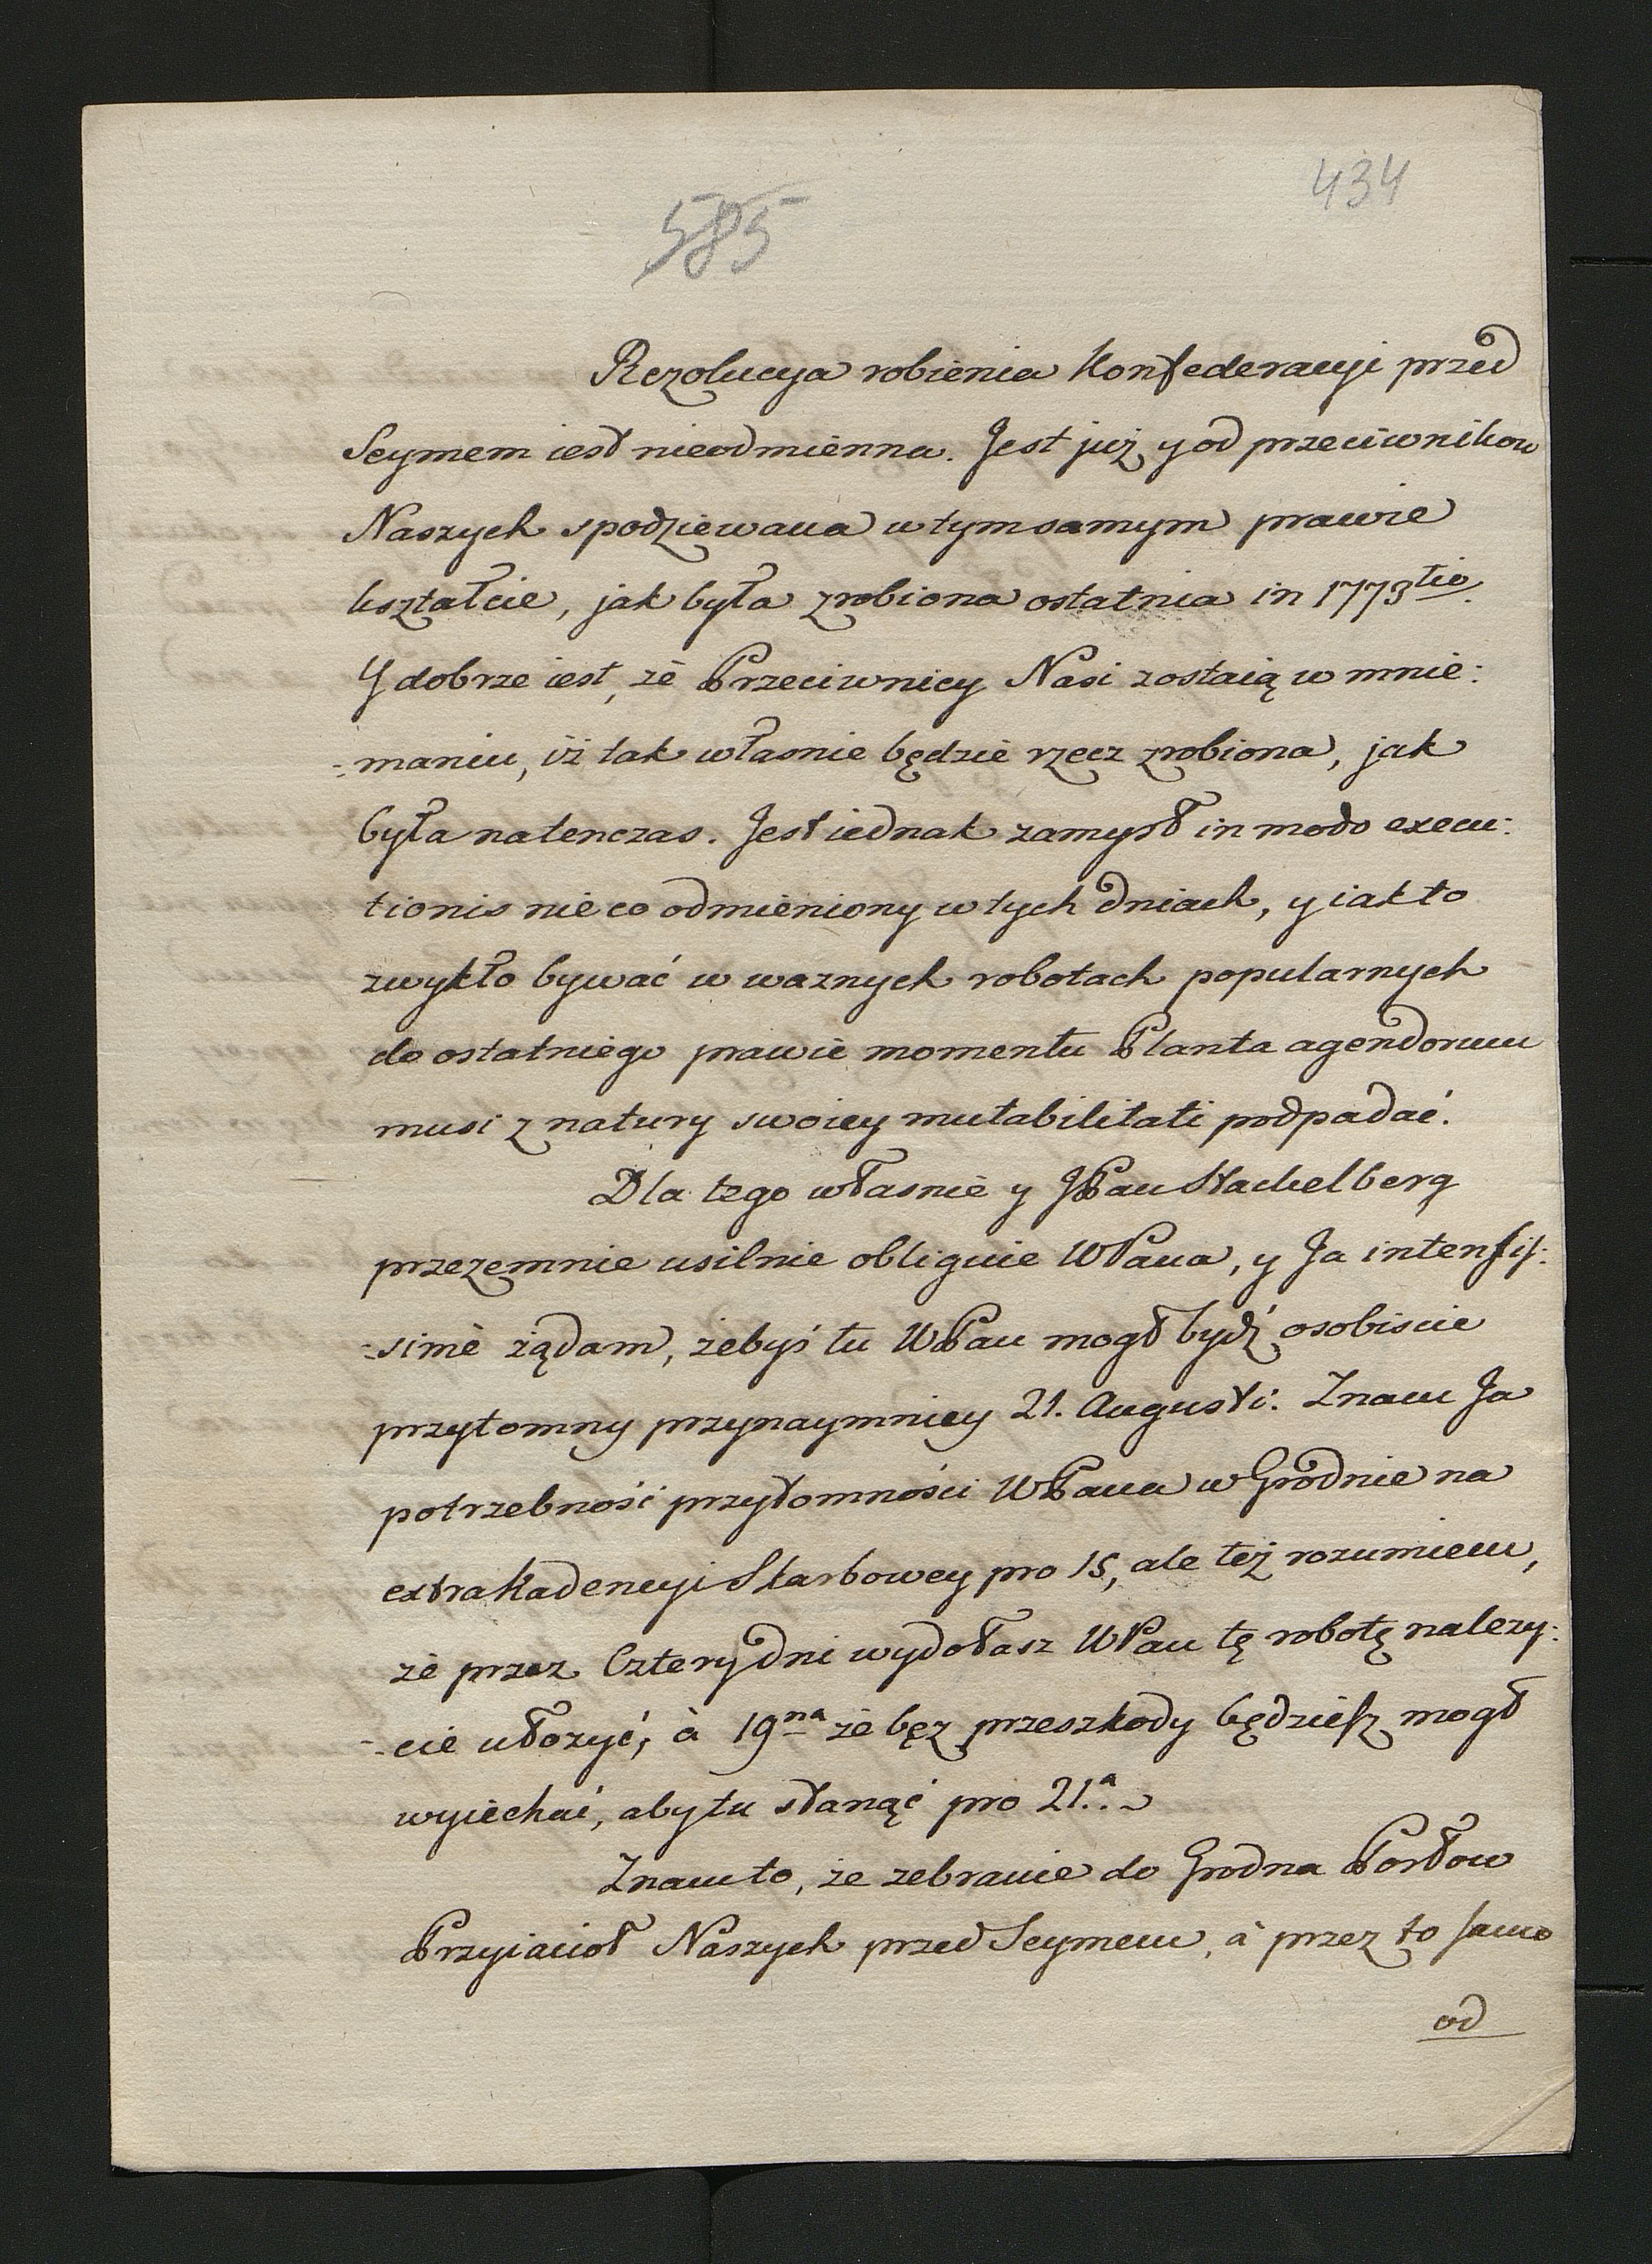 434
585
Rezolucya robienia Konfederacyi przed
Seymem iest nieodmienna. Jest już y od przeciwnikow
Naszych spodziewana w tym samym prawie
kształcie, jak była zrobiona ostatnia in 1773tio.
Y dobrze iest, że Przeciwnicy Nasi zostaią w mnie:
-maniu, iż tak własnie będzie rzecz zrobiona, jak
była natenczas. Jest iednak zamysł in modo execu:
tionis nieco odmieniony w tych dniach, y iak to
zwykło bywać w waznych robotach popularnych
do ostatniego prawie momentu Planta agendorum
musi z natury swoiey mutabilitati podpadać.
Dla tego własnie y JPan Stackelberg
przezemnie usilnie obliguie WPana, y Ja intensis:
-simè żądam, żebyś tu WPan mogł bydź osobiscie
przytomny przynaymniey 21. Augusti. Znam Ja
potrzebność przytomności WPana w Grodnie na
extrakadencyi Skarbowey pro 15, ale też rozumiem,
że przez Cztery dni wydołasz WPan tę robotę nalezy:
-cie ułożyć, à 19na że bez przeszkody będziesz mogł
wyiechać, aby tu stanąć pro 21.a
Znam to, że zebranie do Grodna Posłow
Przyiacioł Naszych przed Seymem, à przez to samo
od